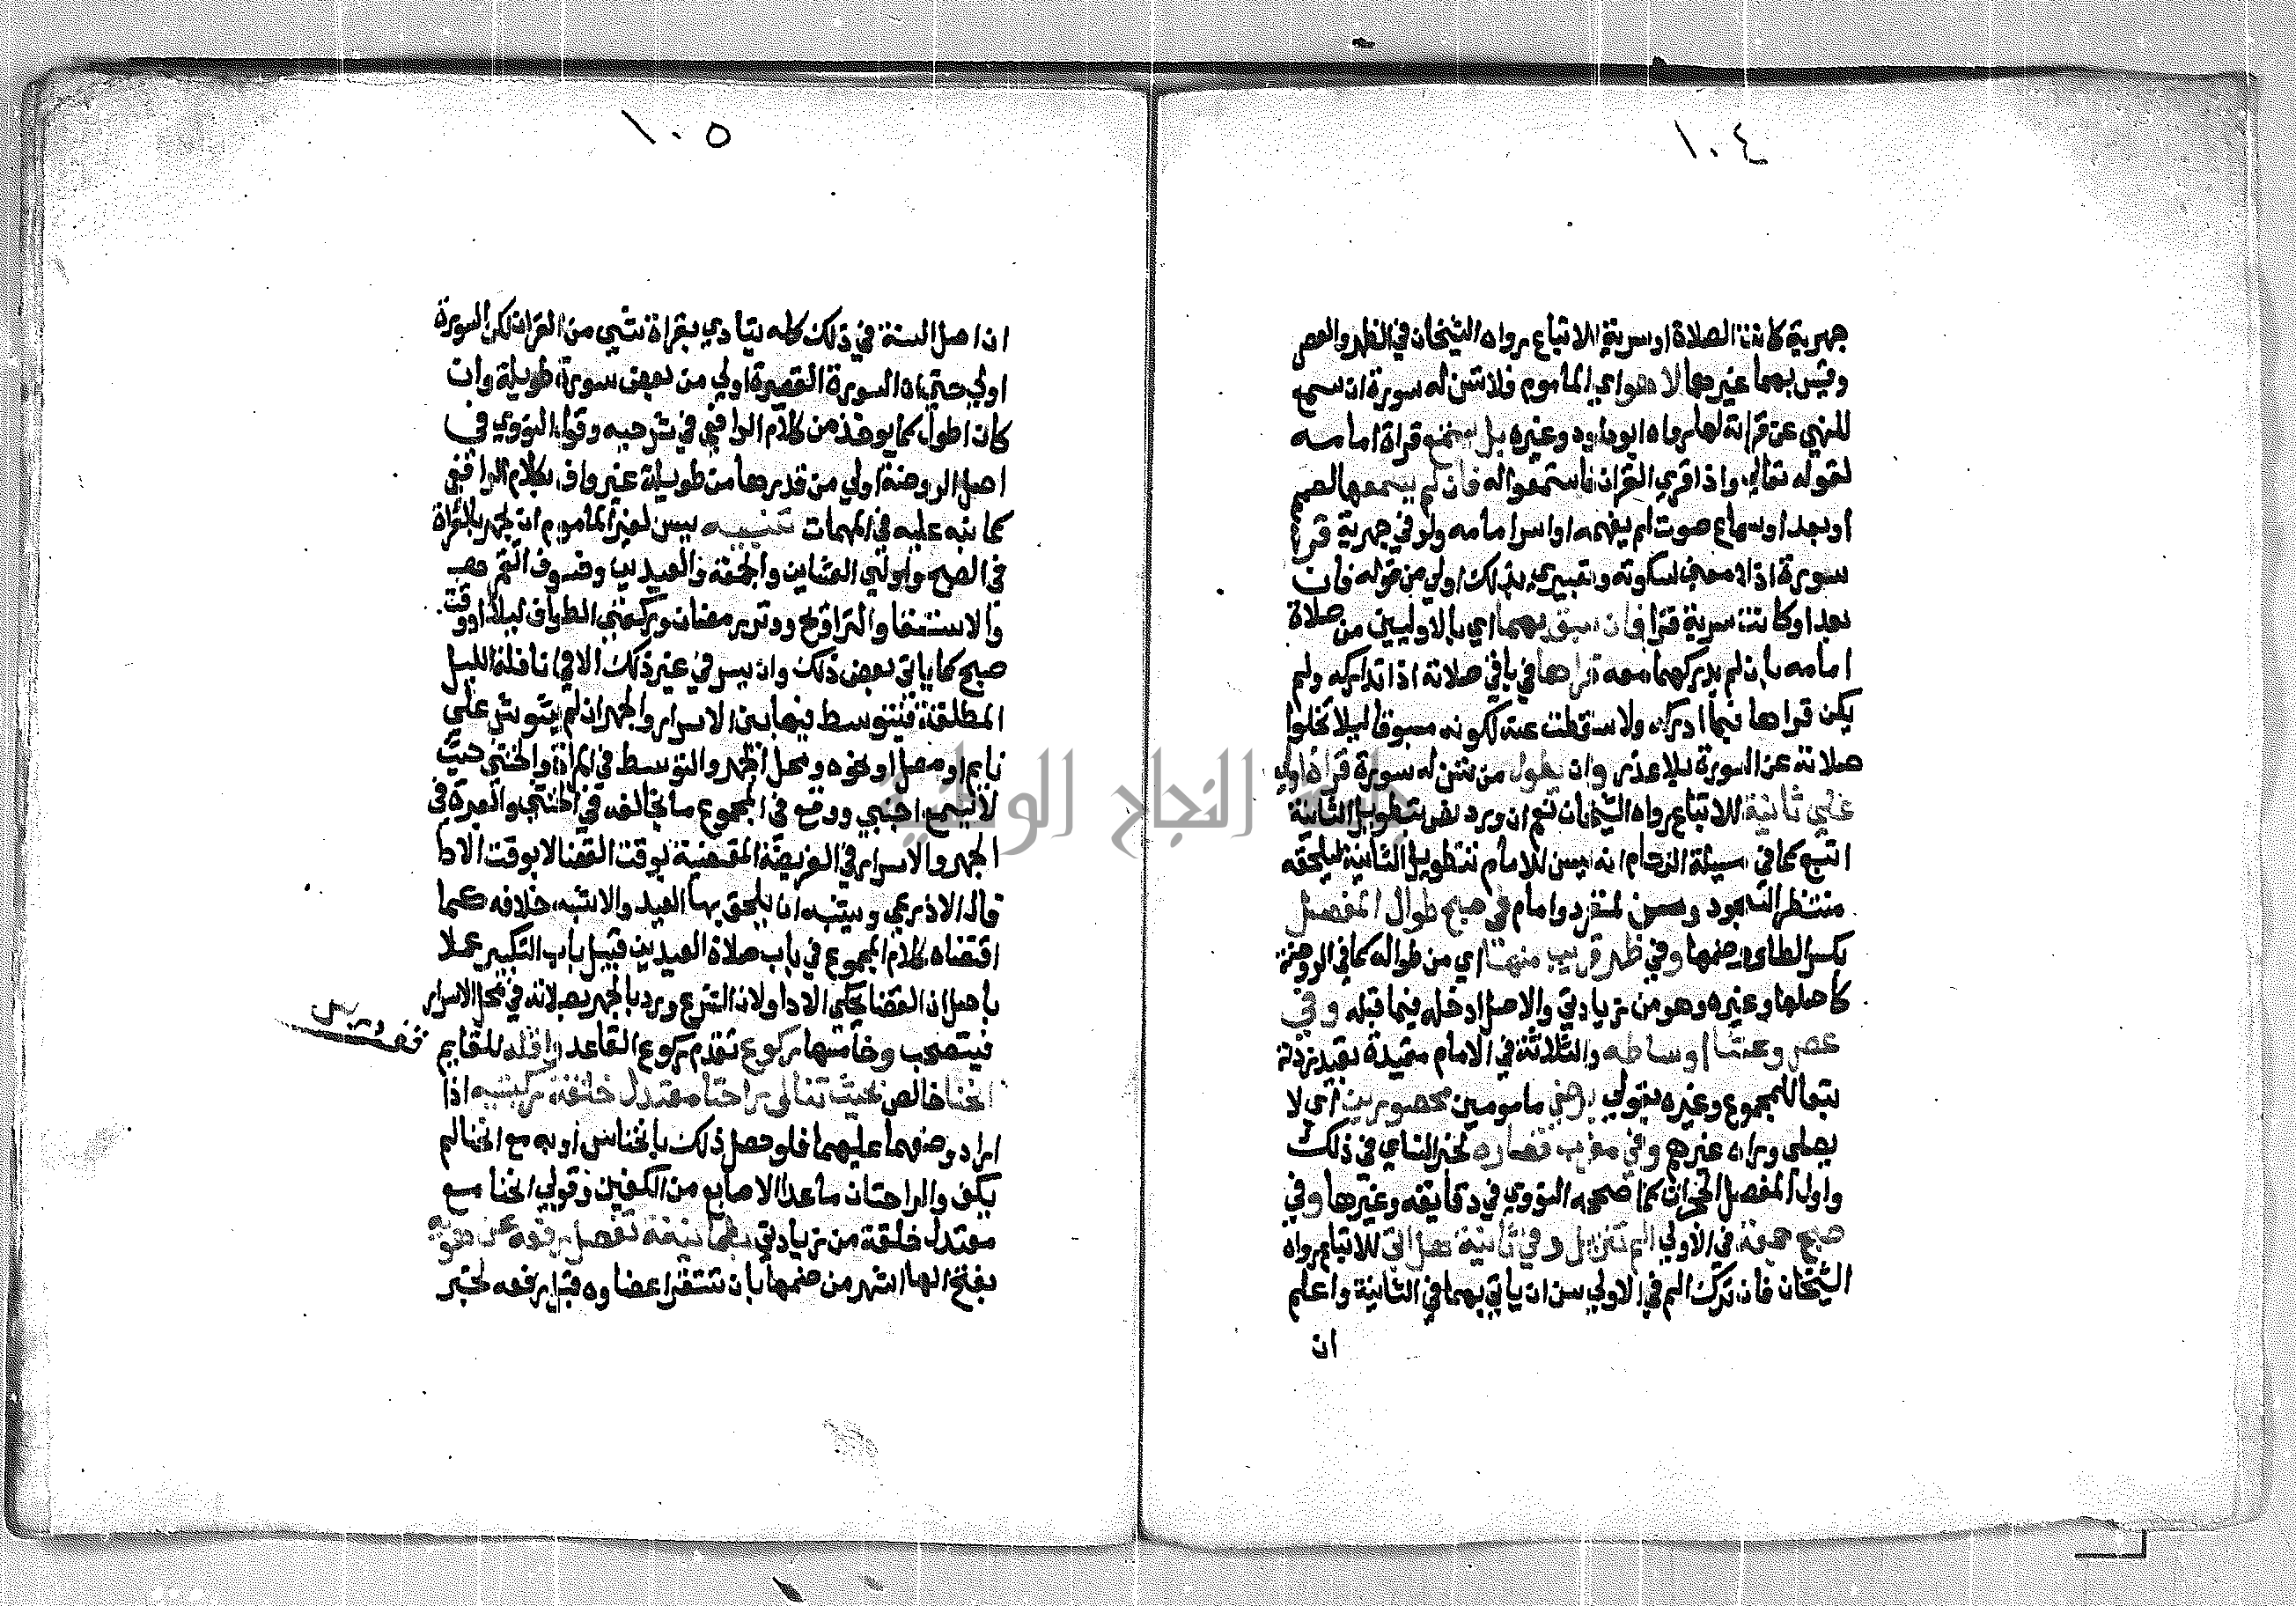 ١٠٤
جهرية كانت الصلاة او سرية للاتباع رواه الشيخان في الظهر والعصر
وقيس بهما غيرهما لا هو اي الماموم فلا تسن له سورة ان سمع
للنهي عن قراته لها رواه ابو داود وغيره بل يستمع قراة امامه
لقوله تعالى واذا قري القران فاستمعوا له فان لم يسمعها لصمم
او بعد او سماع صوت لم يفهمه او اسر امامه ولو في جهرية قرا
سورة اذ لا معنى لسكوته وتعبيري بذلك اولي من قوله فان
بعد او كانت سرية قرا فان سبق بهما اي بالاوليين من صلاة
امامه بان لم يدركهما معه قراها في باقي صلاته اذا تداركه ولم
يكن قراها فيما ادركه ولا سقطت عنه لكونه مسبوقا ليلا تخلوا
صلاته عن السورة بلا عذر وان يطول من تسن له سورة قراة اولي
علي ثانية للاتباع رواه الشيخان نعم ان ورد نص بتطويل الثانية
اتبع كما في مسيلة الزحام انه يسن للامام تطويل الثانية ليلحقه
منتظر السجود وسن لمنفرد وامام في صبح طوال المفصل
بكسر الطاء وضمها وفي ظهر قريب منها اي من طواله كما في الروضة
كاصلها وغيره وهو من زيادتي والاصل ادخله فيما قبله وفي
عصر وعشا اوساطه والثلاثة في الامام مقيدة بقيد زدته
تبعا للمجموع وغيره بقولي برضي مامومين محصورين اي لا
يصلى وراه غيرهم وفي مغرب قصاره لخبر النساي في ذلك
واول المفصل الحجرات كما صححه النووي في دقايقه وغيرها وفي
صبح جمعة في الاولي الم تنزيل وفي ثانية هل اتى للاتباع رواه
الشيخان فان ترك الم في الاولي سن ان ياتي بهما في الثانية واعلم
ان
١٠٥
ان اصل السنة في ذلك كله يتادي بقراة شي من القران لكن السورة
اولي حتى ان السورة القصيرة اولي من بعض سورة طويلة وان
كان اطول كما يوخذ من كلام الرافعي في شرحيه وقول النووي في
اصل الروضة اولي من قدرها من طويلة غير واف بكلام الرافعي
كما نبه عليه في المهمات تنبيه يسن لغير الماموم ان يجهر بالقراة
في الصبح واولتي العشاين والجمعة والعيدين وخسوف القمر
والاستسقا والتراويح ووتر رمضان وركعتي الطواف ليلا او وقت
صبح كما ياتي بعض ذلك وان يسر في غير ذلك الا في نافلة الليل
المطلقة فيتوسط فيها بين الاسرار والجهر ان لم يشوش علي
نايم او مصل او نحوه ومحل الجهر والتوسط في المراة والخنثي حيث
لا يسمع اجنبي ووقع في المجموع ما يخالفه في الخنثي والعبرة في
الجهر والاسرار في الفريضة المقضية بوقت القضا لا بوقت الادا
قال الاذرعي ويشبه ان يلحق بها العيد والاشبه خلافه كما
اقتضاه كلام المجموع في باب صلاة العيدين قبيل باب التكبير عملا
باصل ان القضا يحكي الادا ولان الشرع ورد بالجهر بصلاته في محل الاسرار
فيستصحب وخامسها ركوع تقدم ركوع القاعد واقله للقايم
انحنا خالص بحيث تنال راحتا معتدل خلقة ركبتيه اذا
اراد وضعهما عليهما فلو حصل ذلك بانخناس او به مع انحنا لم
يكف والراحتان ما عدا الاصابع من الكفين وقولي انحنا مع
معتدل خلقة من زيادتي بطمانينة تفصل رفعه عن هويه
بفتح الها اشهر من ضمها بان تستقر اعضاوه قبل رفعه لخبر